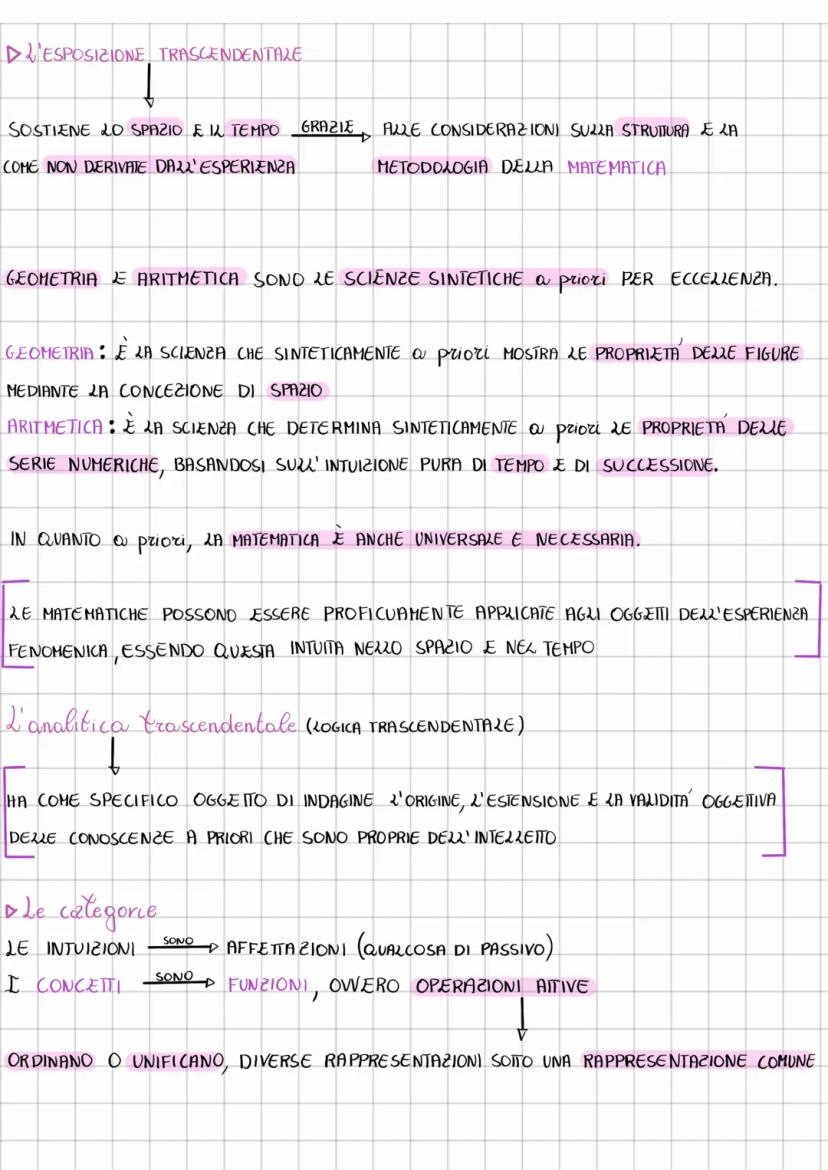 ▷ L'ESPOSIZIONE TRASCENDENTALE
SOSTIENE LO SPAZIO E IL TEMPO GRAZIE ALLE CONSIDERAZIONI SULLA STRUTTURA E LA
COME NON DERIVATE DALL'ESPERIENZA METODOLOGIA DELLA MATEMATICA
GEOMETRIA E ARITMETICA SONO LE SCIENZE SINTETICHE a priori PER ECCELLENZA.
GEOMETRIA: È LA SCIENZA CHE SINTETICAMENTE a priori MOSTRA LE PROPRIETA' DELLE FIGURE
MEDIANTE LA CONCEZIONE DI SPAZIO
ARITMETICA: È LA SCIENZA CHE DETERMINA SINTETICAMENTE a priori LE PROPRIETA' DELLE
SERIE NUMERICHE, BASANDOSI SULL'INTUIZIONE PURA DI TEMPO E DI SUCCESSIONE.
IN QUANTO a priori, LA MATEMATICA È ANCHE UNIVERSALE E NECESSARIA.
LE MATEMATICHE POSSONO ESSERE PROFICUAMENTE APPLICATE AGLI OGGETTI DELL'ESPERIENZA
FENOMENICA, ESSENDO QUESTA INTUITA NELLO SPAZIO E NEL TEMPO
L'analitica trascendentale (LOGICA TRASCENDENTALE)
HA COME SPECIFICO OGGETTO DI INDAGINE L'ORIGINE, L'ESTENSIONE E LA VALIDITA' OGGETTIVA
DELLE CONOSCENZE A PRIORI CHE SONO PROPRIE DELL'INTELLETTO
▷ Le categorie
LE INTUIZIONI SONO AFFETTAZIONI (QUALCOSA DI PASSIVO)
I CONCETTI SONO FUNZIONI, OVVERO OPERAZIONI ATTIVE
ORDINANO O UNIFICANO, DIVERSE RAPPRESENTAZIONI SOTTO UNA RAPPRESENTAZIONE COMUNE